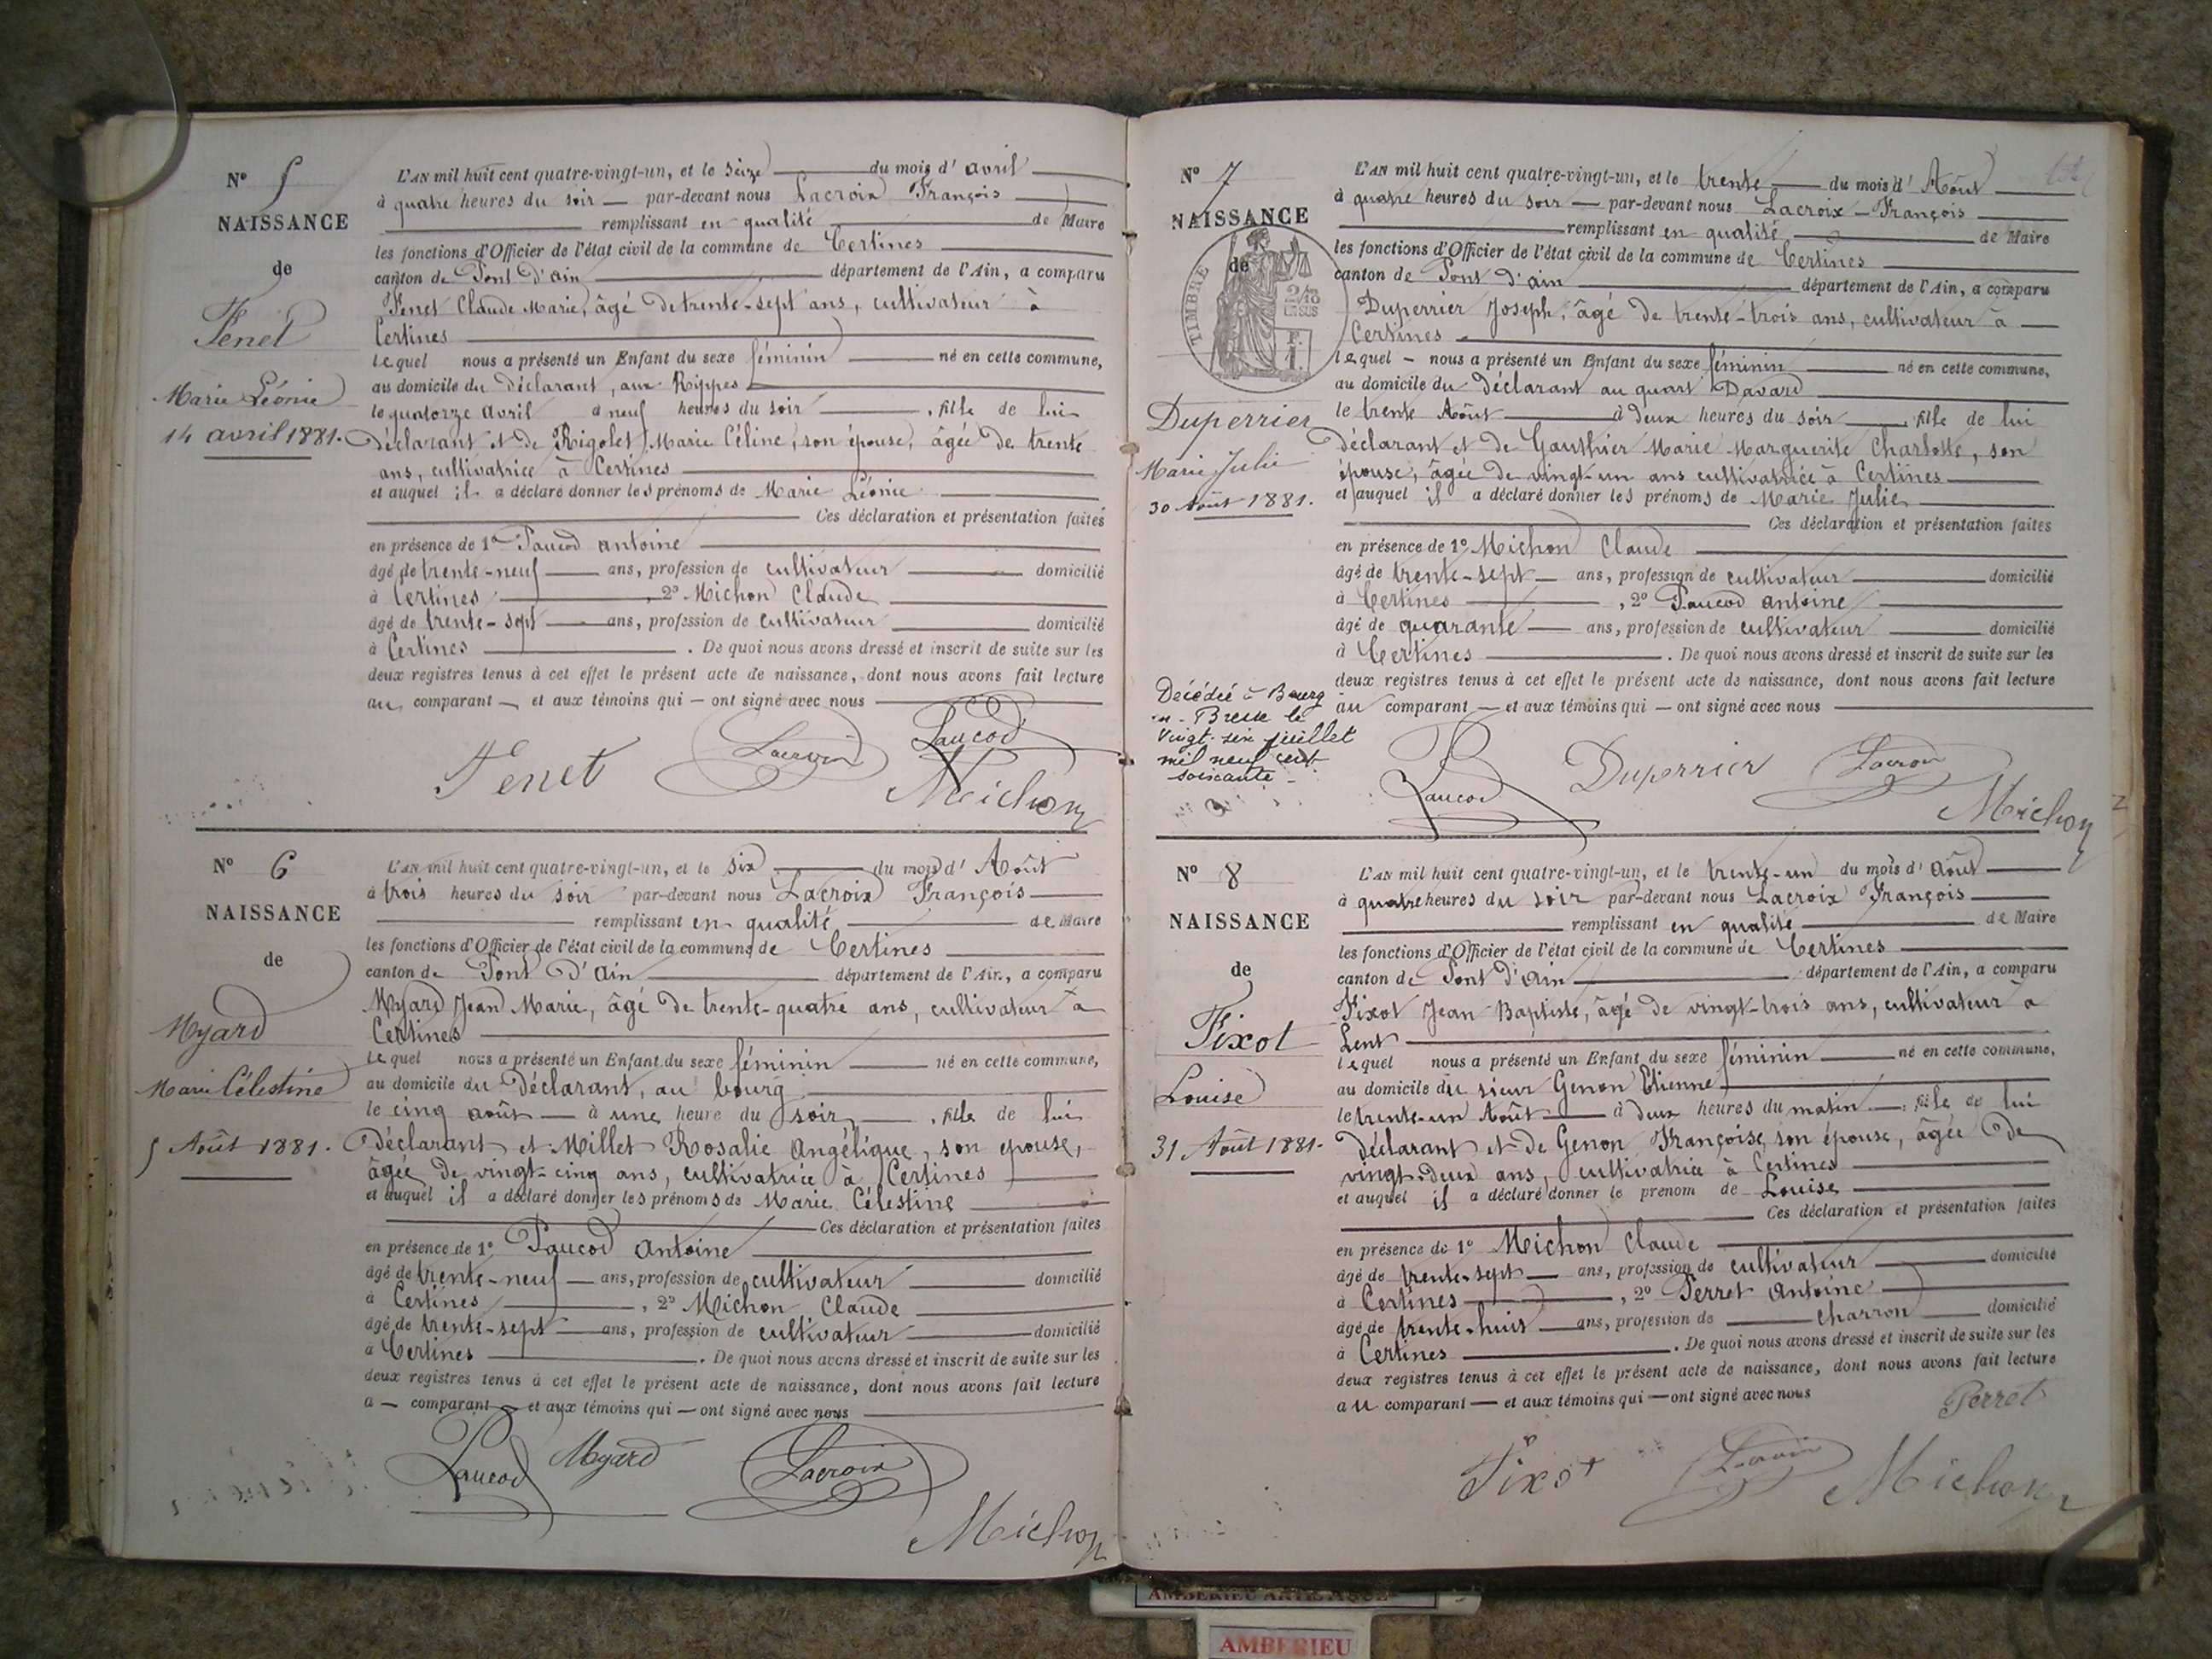 N° 5
NAISSANCE
de
Fenet
Marie Léonie
14 avril 1881.
L'AN mil huit cent quatre-vingt-un, et le seize du mois d'avril
à quatre heures du soir par-devant nous Lacroix François
remplissant en qualité de Maire
les fonctions d'Officier de l'état civil de la commune de Certines
canton de Pont d'ain département de l'Ain, a comparu
Fenet Claude Marie, âgé de trente-sept ans, cultivateur à
Certines
lequel nous a présenté un Enfant du sexe féminin né en cette commune,
au domicile du Déclarant, aux Rippes
le quatorze avril à neuf heures du soir, fille de lui
déclarant et de Rigolet Marie Céline, son épouse, âgée de trente
ans, cultivatrice à Certines
et auquel il a déclaré donner les prénoms de Marie Léonie
Ces déclaration et présentation faites
en présence de 1° Paucod antoine
âgé de trente-neuf ans, profession de cultivateur domicilié
à Certines, 2° Michon Claude
âgé de trente-sept ans, profession de cultivateur domicilié
à Certines. De quoi nous avons dressé et inscrit de suite sur les
deux registres tenus à cet effet le présent acte de naissance, dont nous avons fait lecture
au comparant et aux témoins qui ont signé avec nous
Fenet Lacroix Paucod
Michon
N° 6
NAISSANCE
de
Myard
Marie Célestine
5 Août 1881.
L'AN mil huit cent quatre-vingt-un, et le six du mois d'Août
à trois heures du soir par-devant nous Lacroix François
remplissant en qualité de Maire
les fonctions d'Officier de l'état civil de la commune de Certines
canton de Pont d'ain département de l'Ain, a comparu
Myard Jean Marie, âgé de trente-quatre ans, cultivateur à
Certines
lequel nous a présenté un Enfant du sexe féminin né en cette commune,
au domicile du Déclarant, au bourg
le cinq août à une heure du soir, fille de lui
Déclarant et Millet Rosalie Angélique, son épouse,
âgée de vingt-cinq ans, cultivatrice à Certines
et auquel il a déclaré donner les prénoms de Marie Célestine
Ces déclaration et présentation faites
en présence de 1° Paucod antoine
âgé de trente-neuf ans, profession de cultivateur domicilié
à Certines, 2° Michon Claude
âgé de trente-sept ans, profession de cultivateur domicilié
à Certines. De quoi nous avons dressé et inscrit de suite sur les
deux registres tenus à cet effet le présent acte de naissance, dont nous avons fait lecture
a comparant et aux témoins qui ont signé avec nous
Paucod Myard Lacroix
Michon
N° 7
NAISSANCE
de
TIMBRE
Duperrier
Marie Julie
30 Août 1881.
Décédée à Bourg
en-Bresse le
vingt-six juillet
mil neuf cent
soixante
L'AN mil huit cent quatre-vingt-un, et le trente du mois d'Août
à quatre heures du soir par-devant nous Lacroix François
remplissant en qualité de Maire
les fonctions d'Officier de l'état civil de la commune de Certines
canton de Pont d'ain département de l'Ain, a comparu
Duperrier Joseph, âgé de trente-trois ans, cultivateur à
Certines
lequel nous a présenté un Enfant du sexe féminin né en cette commune,
au domicile du déclarant au quart Davard
le trente Août à deux heures du soir, fille de lui
déclarant et de Gauthier Marie Marguerite Charlotte, son
épouse, âgée de vingt-un ans cultivatrice à Certines
et auquel il a déclaré donner les prénoms de Marie Julie
Ces déclaration et présentation faites
en présence de 1° Michon Claude
âgé de trente-sept ans, profession de cultivateur domicilié
à Certines, 2° Paucod antoine
âgé de quarante ans, profession de cultivateur domicilié
à Certines. De quoi nous avons dressé et inscrit de suite sur les
deux registres tenus à cet effet le présent acte de naissance, dont nous avons fait lecture
au comparant et aux témoins qui ont signé avec nous
Paucod Duperrier Lacroix
Michon
N° 8
NAISSANCE
de
Fixot
Louise
31 Août 1881.
L'AN mil huit cent quatre-vingt-un, et le trente-un du mois d'août
à quatre heures du soir par-devant nous Lacroix François
remplissant en qualité de Maire
les fonctions d'Officier de l'état civil de la commune de Certines
canton de Pont d'ain département de l'Ain, a comparu
Fixot Jean Baptiste, âgé de vingt-trois ans, cultivateur à
Lent
lequel nous a présenté un Enfant du sexe féminin né en cette commune,
au domicile du sieur Genon Etienne
le trente-un Août à deux heures du matin, fille de lui
déclarant et de Genon Françoise, son épouse, âgée de
vingt-deux ans, cultivatrice à Certines
et auquel il a déclaré donner le prénom de Louise
Ces déclaration et présentation faites
en présence de 1° Michon Claude
âgé de trente-sept ans, profession de cultivateur domicilié
à Certines, 2° Perret Antoine
âgé de trente-huit ans, profession de charron domicilié
à Certines. De quoi nous avons dressé et inscrit de suite sur les
deux registres tenus à cet effet le présent acte de naissance, dont nous avons fait lecture
au comparant et aux témoins qui ont signé avec nous
Perret
Fixot Lacroix Michon
AMBERIEU